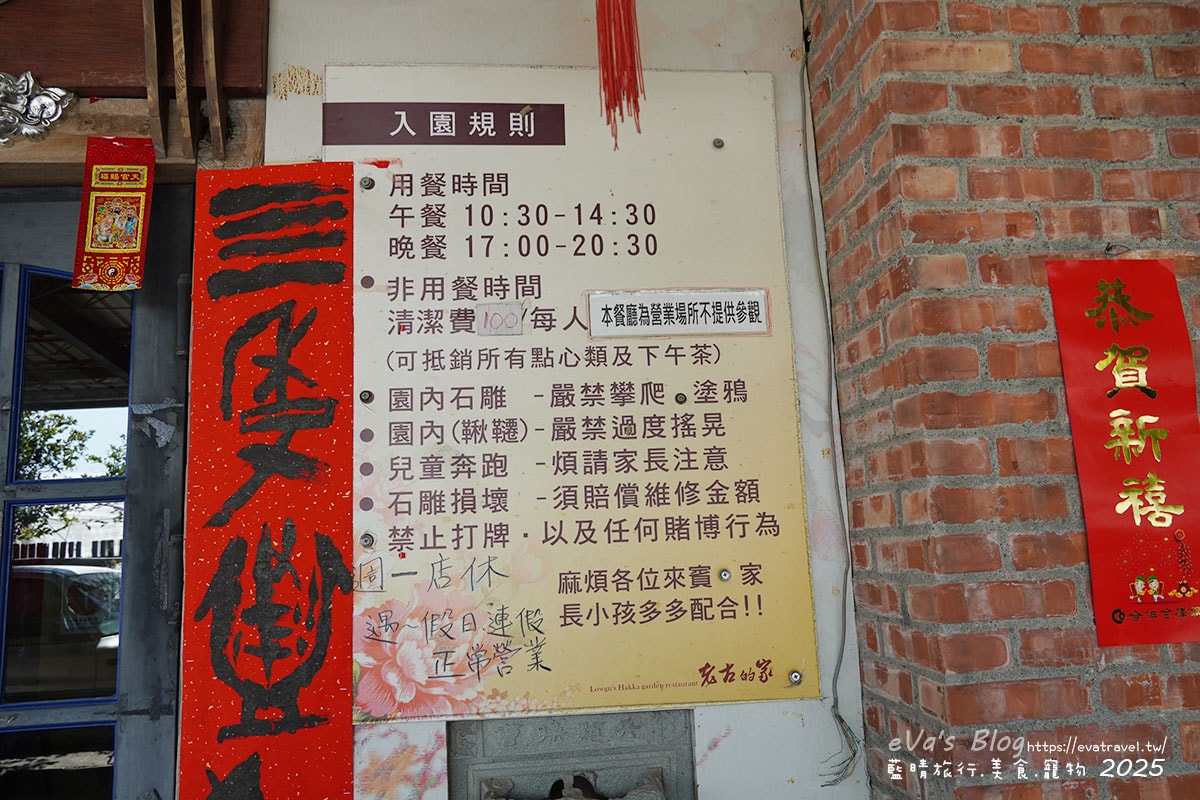 入園規則
用餐時間
午餐 10:30-14:30
晚餐 17:00-20:30
非用餐時間
清潔費100/每人
本餐廳為營業場所不提供參觀
(可抵銷所有點心類及下午茶)
園內石雕 -嚴禁攀爬 塗鴉
園內(鞦韆)-嚴禁過度搖晃
兒童奔跑 -煩請家長注意
石雕損壞 -須賠償維修金額
禁止打牌‧以及任何賭博行為
週一店休
遇~假日連假
正常營業
麻煩各位來賓 家
長小孩多多配合!!
Lowgu's Hakka garden restaurant 老古的家
天官賜福
恭賀新禧
eVa's Blog https://evatravel.tw/
藍晴旅行.美食.寵物 2025